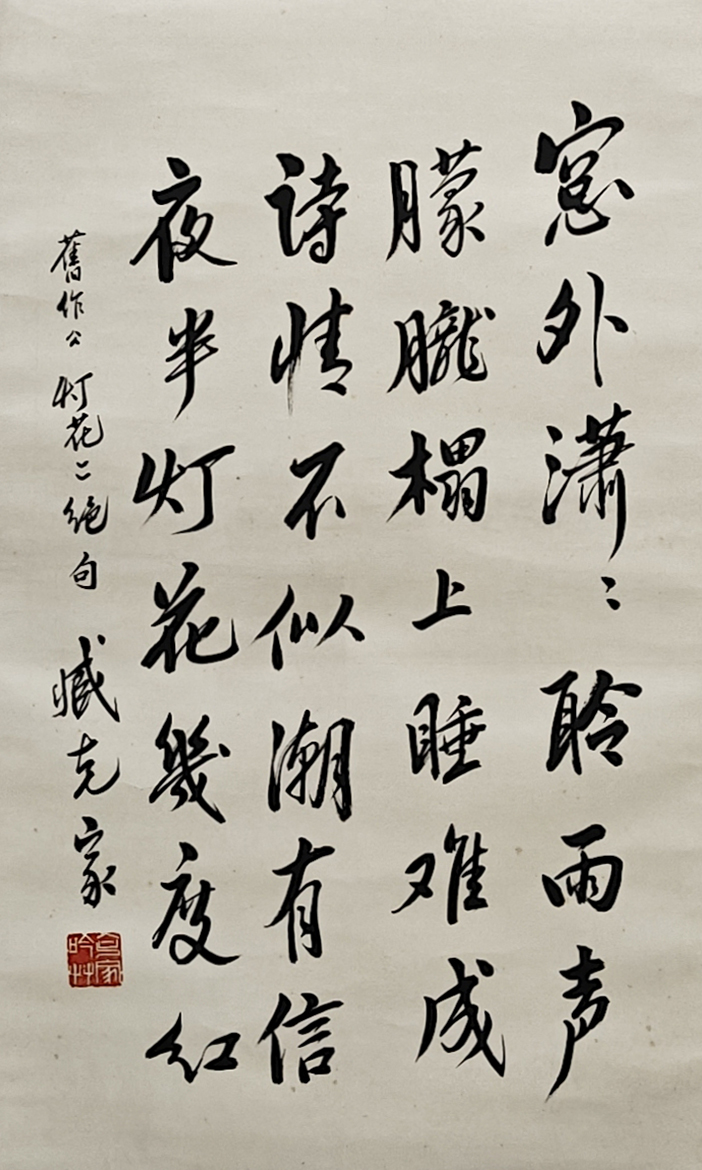 窓外潇〻聆雨声
朦朧榻上睡难成
诗情不似潮有信
夜半灯花幾度红
舊作公灯花二绝句 臧克家